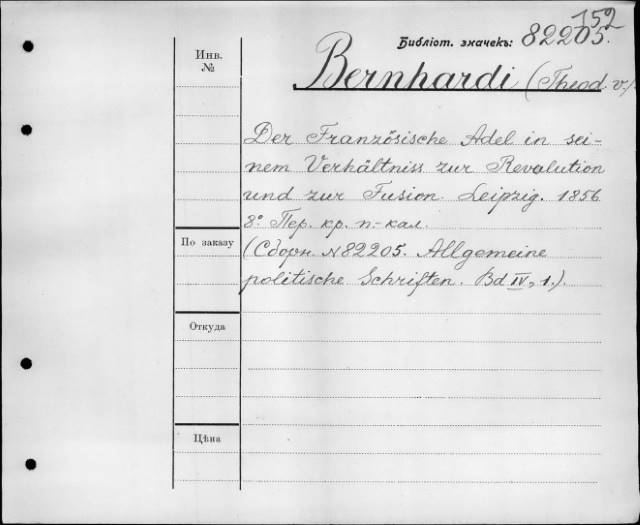 152
Библiот. значекъ: 82205.
Инв.
№
Bernhardi (Theod. v.).
Der Französische Adel in sei-
nem Verhältniss zur Revolution
und zur Fusion. Leipzig. 1856.
8º Пер. кр. п.-кал.
По заказу
(Сборн. N 82205. Allgemeine
politische Schriften. Bd IV, 1.).
Откуда
Цѣна